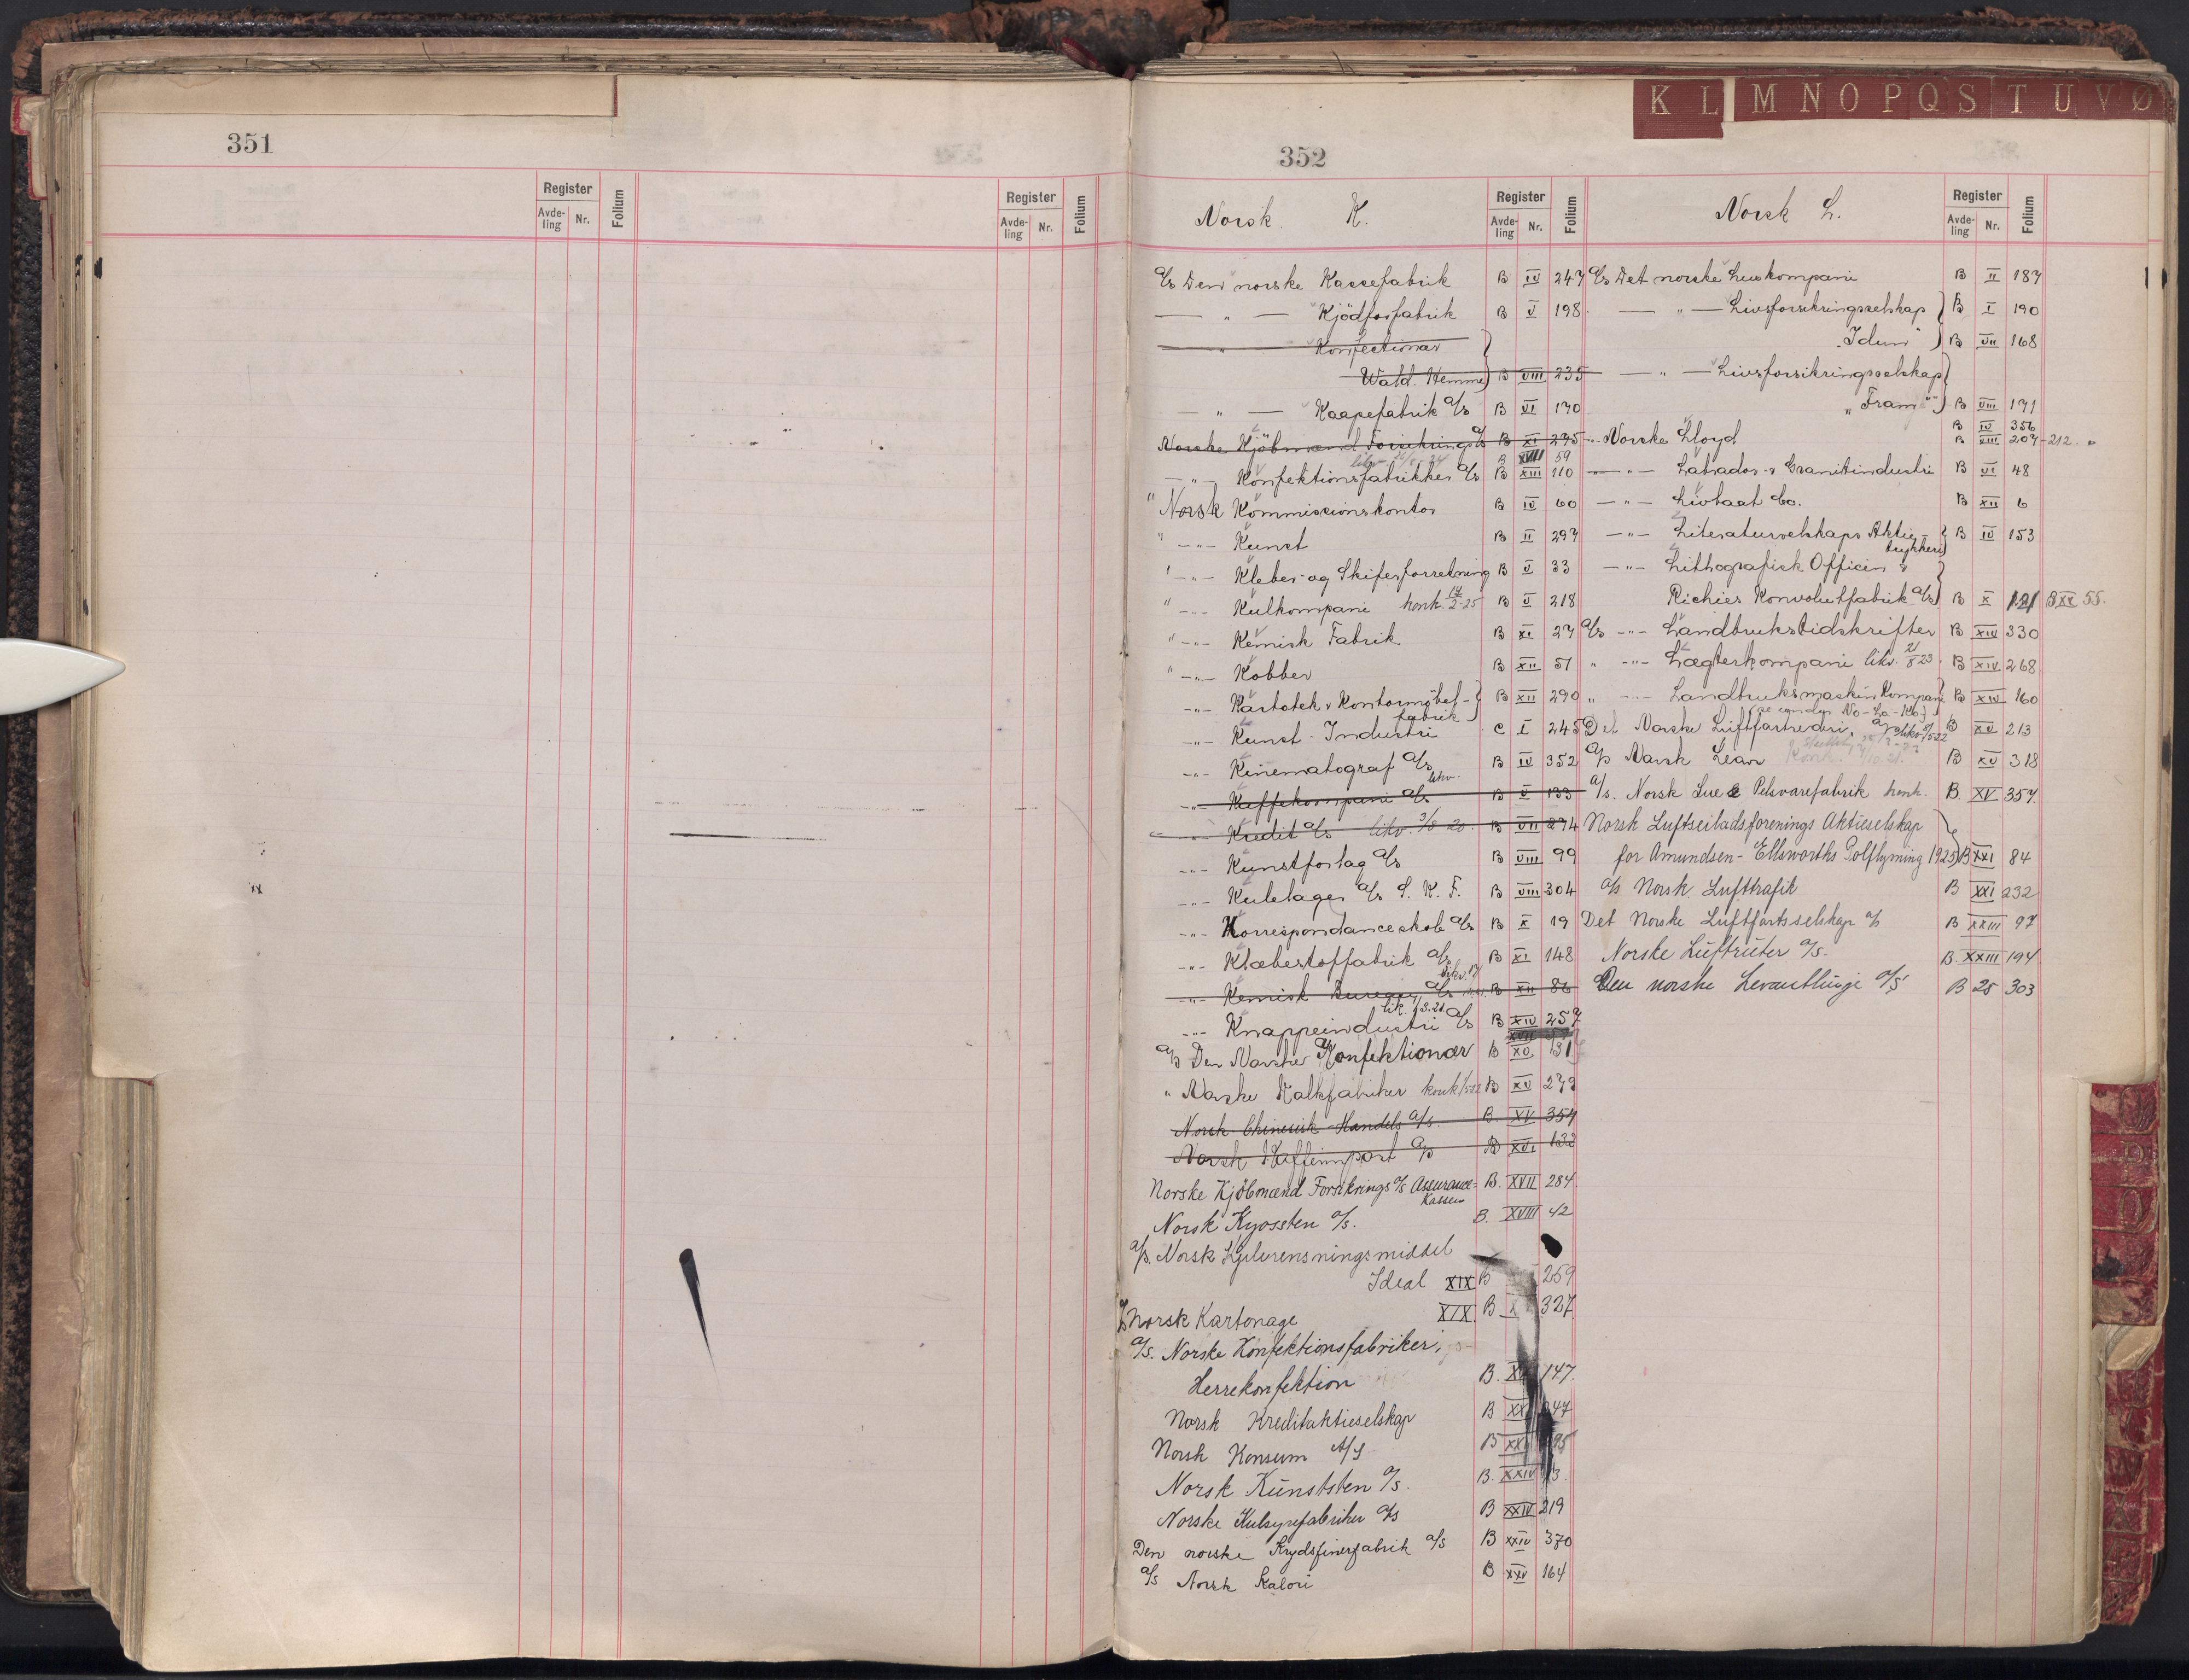 351
Register
Avde-
ling
Nr.
Folium
Register
Avde-
ling
Nr.
Folium
K L M N O P Q S T U V Ø
352
Norsk K.
Register
Avde-
ling
Nr.
Folium
Norsk L.
Register
Avde-
ling
Nr.
Folium
A/s Den norske Kassefabrik B IV 247
— " — Kjödfarsfabrik B V 198
— " — Konfectionær
Wald. Hemme B VIII 235
— " — Kaapefabrik A/s B VI 170
Norske Kjöbmænd Forsikrings A/s B XI 295
B XVIII 59
— " — Konfektionsfabrikker A/s B XIII 110
" Norsk Kommissionskontor B IV 60
" — " — Kunst B II 297
" — " — Kleber- og Skiferforretning B V 33
" — " — Kulkompani konk. 14/2-25 B V 218
" — " — Kemisk Fabrik B XI 27
" — " — Kobber B XII 51
— " — Kartotek & Kontormöbel-
fabrik B XII 290
— " — Kunst-Industri C I 245
— " — Kinematograf A/s B IV 352
— " — Kaffekompani A/s likv. B V 133
— " — Kredit A/s likv. 3/8 20. B VII 294
— " — Kunstforlag A/s B VIII 99
— " — Kulelager A/s S. K. F. B VIII 304
— " — Korrespondanceskole A/s B X 19
— " — Klæbestoffabrik A/s B XI 148
— " — Kemisk Bureau A/s B XII 86
— " — Knappeindustri A/s B XIV 257
A/s Den Norske Konfektionær B XV 131
" Norske Kalkfabriker konk B XV 279
Norsk Chinesisk Handels A/s. B. XV 354
Norsk Kaffeimport A/s B XVI 132
Norske Kjöbmænd Forsikrings A/s Assurance-
Kassen B. XVII 284
Norsk Kyossten A/s. B. XVIII 42
A/s. Norsk Kjelerensningsmiddel
Ideal XIX B 259
A/s Norsk Kartonage XIX B X 327
A/s. Norske Konfektionsfabriker,
Herrekonfektion B. 147
Norsk Kreditaktieselskap B XX 47
Norsk Konsum A/S B XX 95
Norsk Kunststen A/s. B. XXIV 3.
Norske Kulsyrefabriker A/s B XXIV 219
Den norske Krydsfinerfabrik A/s B XXIV 370
A/s Norsk Kalori B XXV 164
A/s Det norske Luxkompani B II 187
— " — Livsforsikringsselskap B I 190
"Idun" B VII 168
— " — Livsforsikringsselskap
"Fram" B VIII 171
Norske Lloyd B IV 356
B XIII 207-212 "
— " — Labrador & Granitindustri B VI 48
— " — Livbaat Co. B XII 6
— " — Literaturselskaps Aktie-
trykkeri B IV 153
— " — Lithografisk Officin &
Richies Konvolutfabrik A/s B X 121 B XX 55.
A/s — " — Landbrukstidskrifter B XIV 330
" — " — Lægterkompani likv. 21/8 23. B XIV 268
" — " — Landbruksmaskin Kompani B XIV 160
Det Norske Luftfartsrederi, A/s likv. B XV 213
A/s Norsk Lear B XV 318
A/s. Norsk Lue & Pelsvarefabrik konk. B. XV 357.
Norsk Luftseiladsforenings Aktieselskap
for Amundsen-Ellsworths Polflyvning 1925 B XXI 84
A/s Norsk Lufttrafik B XXI 232
Det Norske Luftfartsselskap A/s B XXIII 97
Norske Luftruter A/s. B. XXIII 194
Den norske Levantlinje A/S B 25 303